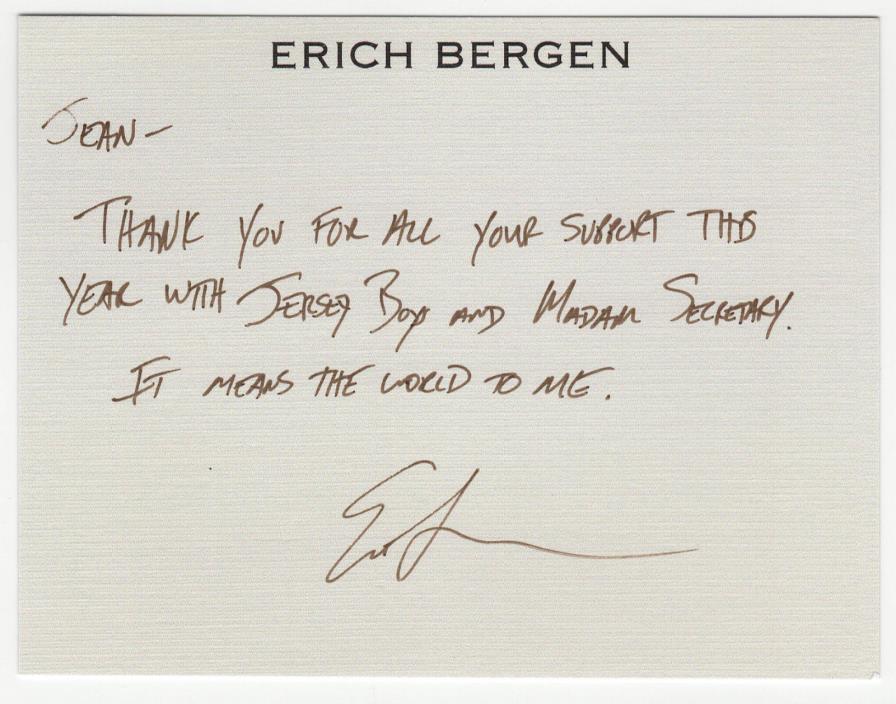 ERICH BERGEN
JEAN-
THANK YOU FOR ALL YOUR SUPPORT THIS
YEAR WITH JERSEY BOYS AND MADAM SECRETARY.
IT MEANS THE WORLD TO ME.